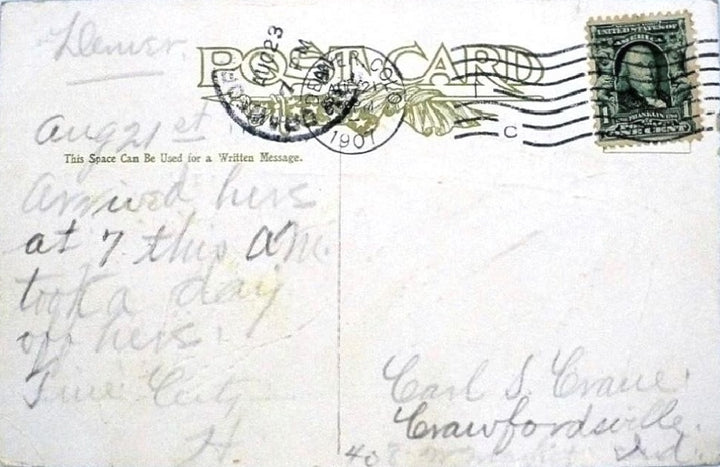 Denver.
POST CARD
AUG 23
7 PM
DENVER, COLO.
1907
C
UNITED STATES OF
AMERICA
FRANKLIN
ONE CENT
Aug 21st
This Space Can Be Used for a Written Message.
Arrived here
at 7 this AM.
took a day
off here.
Fine City
H.
Carl S. Crane.
Crawfordsville.
408 Ind.